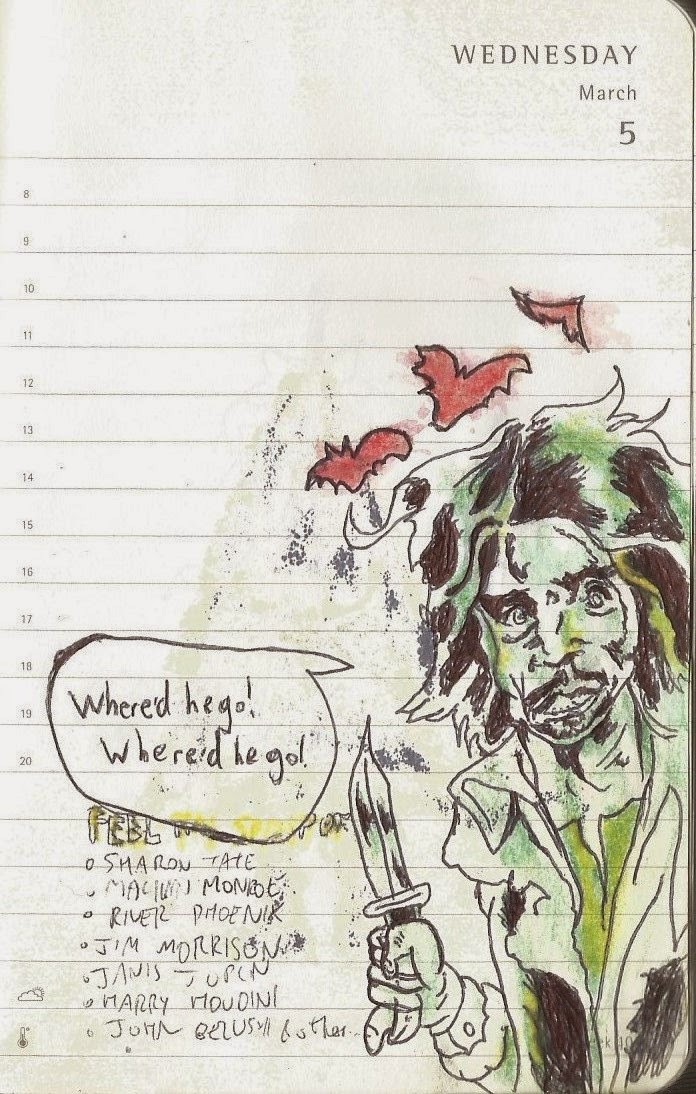 WEDNESDAY
March
5
8
9
10
11
12
13
14
15
16
17
18
19
20
Where'd he go!
Where'd he go!
FEEL
SHARON TATE
MONROE
RIVER PHOENIX
JIM MORRISON
JANIS JOPLIN
HARRY HOUDINI
JOHN BELUSHI & other...